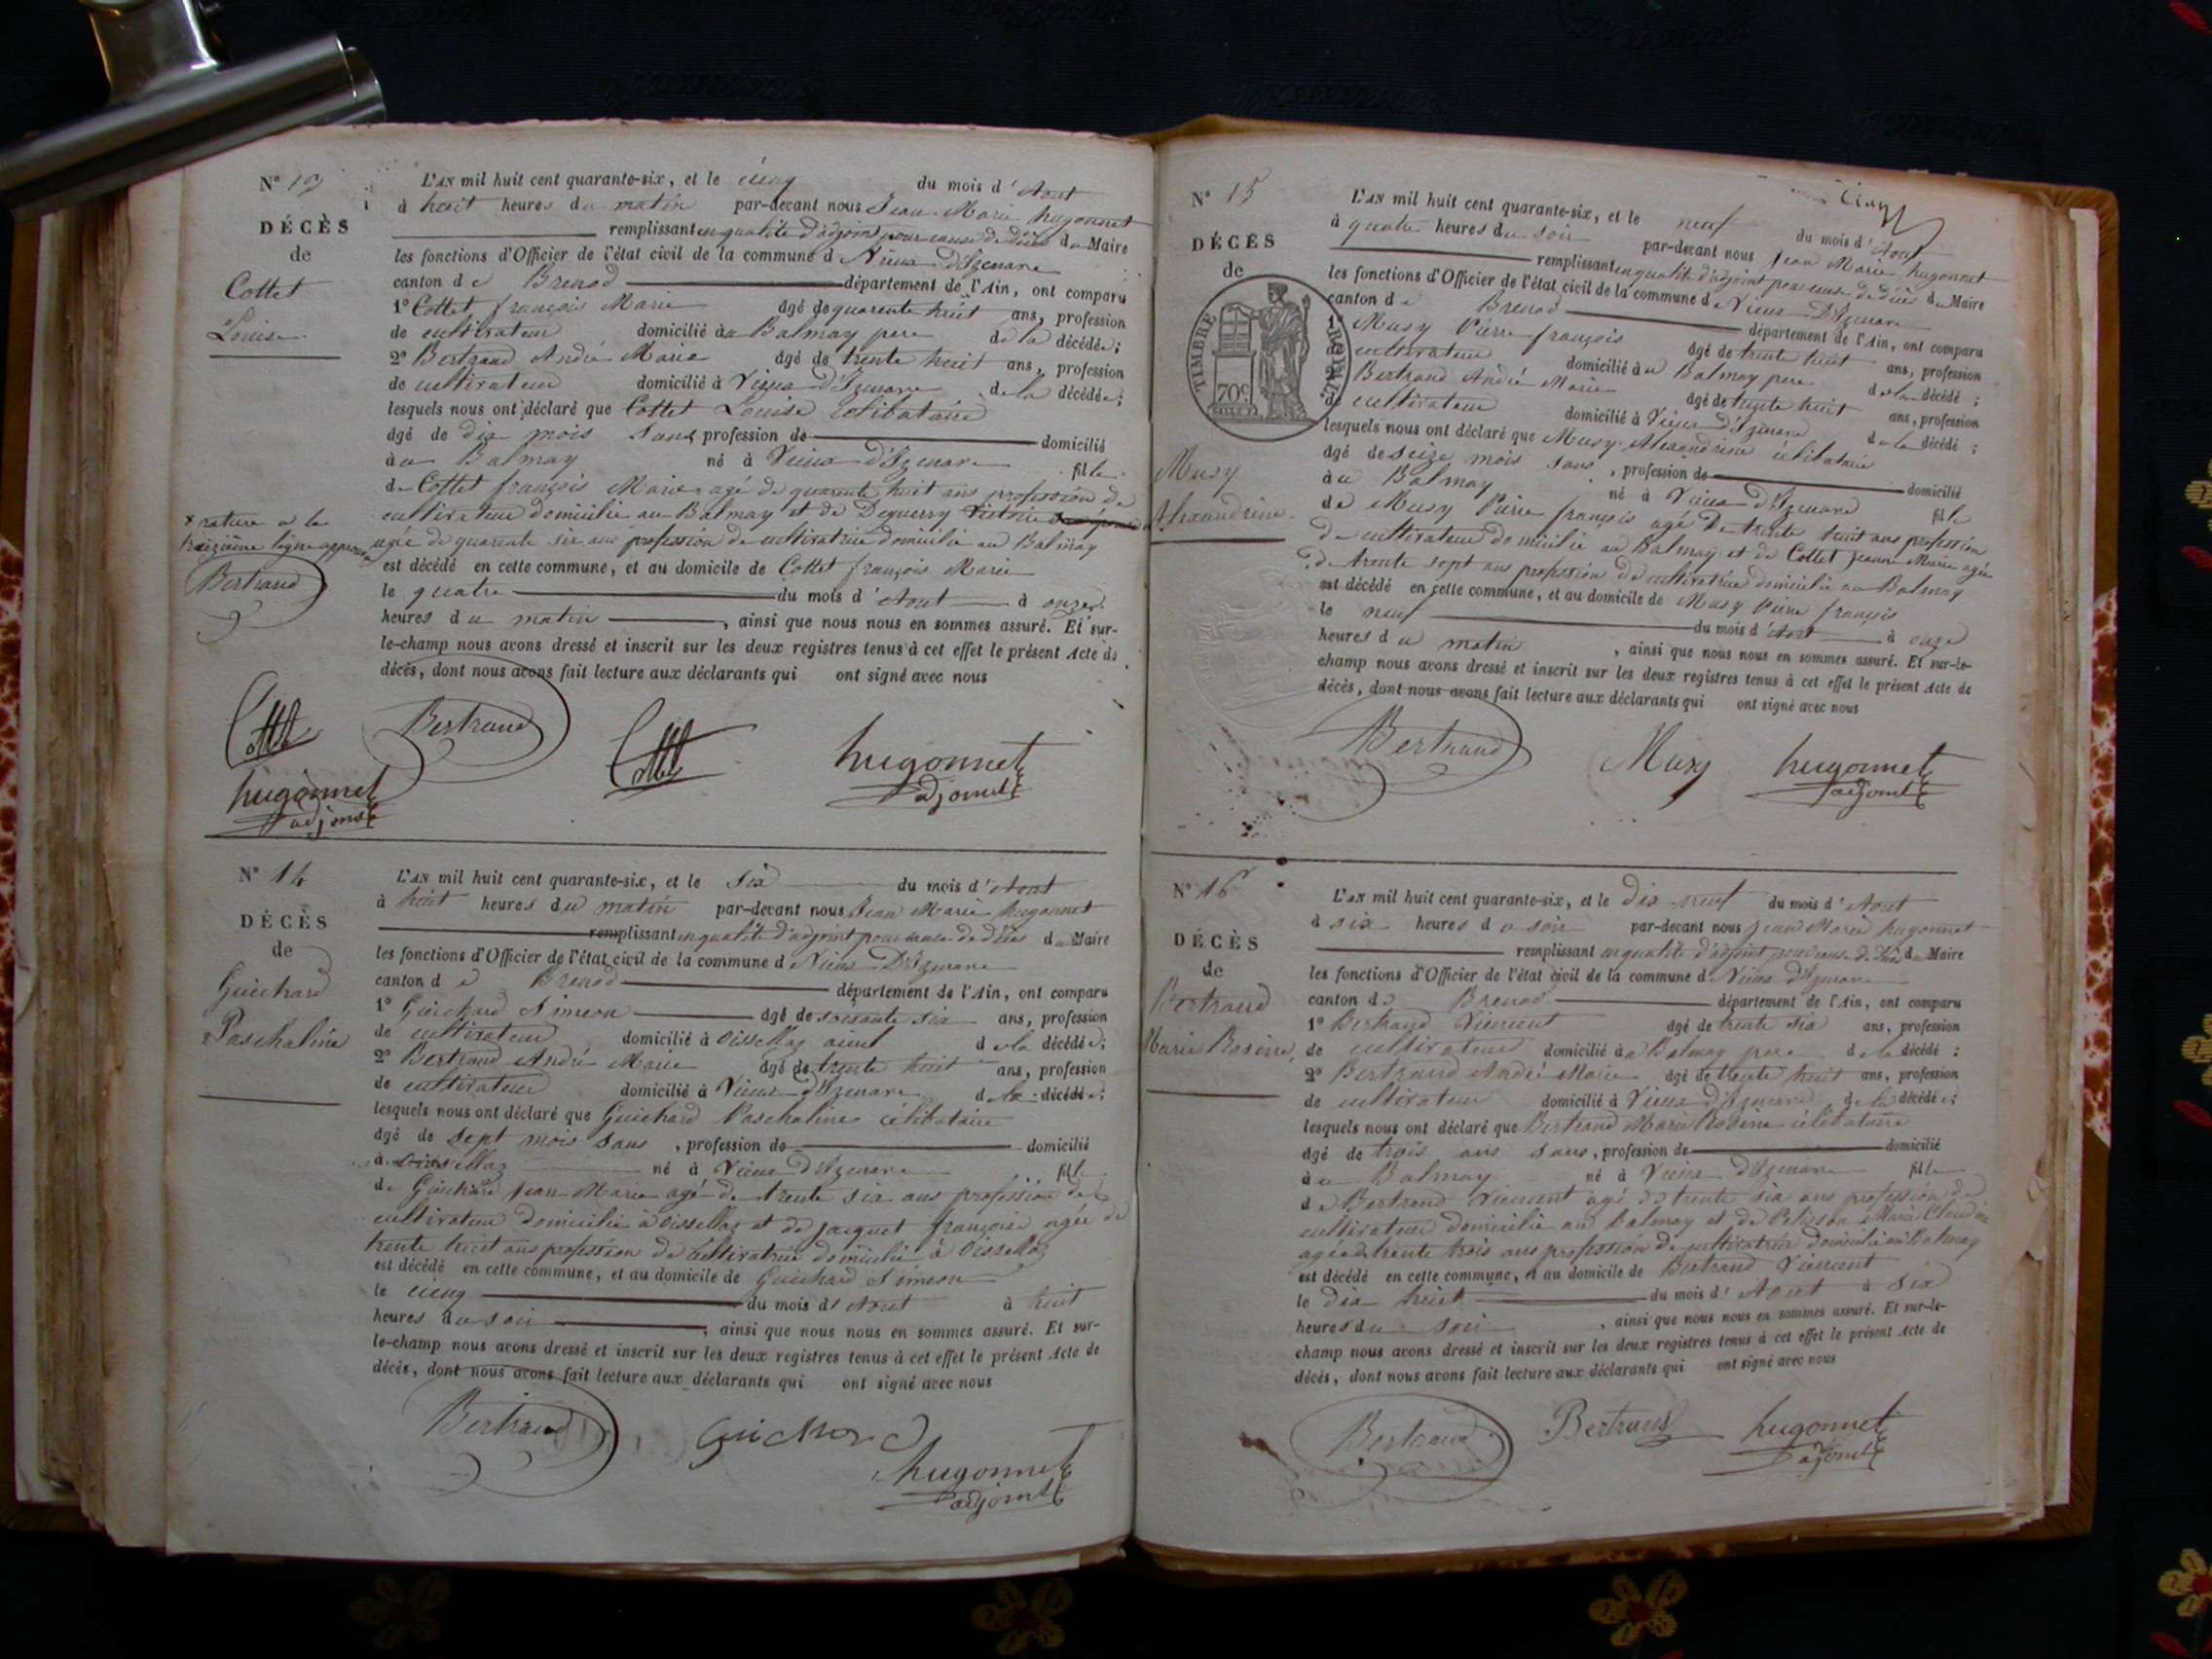 N° 13
DÉCÈS
de
Cottet
Louise
L'AN mil huit cent quarante-six, et le cinq du mois d'Aout
à huit heures du matin par-devant nous Jean Marie hugonnet
remplissant en qualité d'adjoint pour cause de décès du Maire
les fonctions d'Officier de l'état civil de la commune d Vieux D'Izenave
canton de Brenod département de l'Ain, ont comparu
1° Cottet françois Marie âgé de quarente huit ans, profession
de cultivateur domicilié au Balmay pere de la décédée;
2° Bertrand André Marie âgé de trente huit ans, profession
de cultivateur domicilié à Vieux d'Izenave de la décédée;
lesquels nous ont déclaré que Cottet Louise célibataire
âgé de dix mois sans profession de domicilié
au Balmay né à Vieux d'Izenave fille
de Cottet françois Marie agé de quarente huit ans profession de
cultivateur domicilié au Balmay et de Deguerry Victoire
agée de quarente six ans profession de cultivatrice domicilié au Balmay
est décédé en cette commune, et au domicile de Cottet françois Marie
le quatre du mois d'Aout à onze
heures du matin, ainsi que nous nous en sommes assuré. Et sur-
le-champ nous avons dressé et inscrit sur les deux registres tenus à cet effet le présent Acte de
décès, dont nous avons fait lecture aux déclarants qui ont signé avec nous
x rature a la
treizième ligne approuvé
Bertrand
Cottet Bertrand Cottet hugonnet
adjoint
hugonnet
adjoint
N° 14
DÉCÈS
de
Guichard
Paschaline
L'AN mil huit cent quarante-six, et le six du mois d'Aout
à huit heures du matin par-devant nous Jean Marie hugonnet
remplissant en qualité d'adjoint pour cause de décès du Maire
les fonctions d'Officier de l'état civil de la commune d Vieux D'Izenave
canton de Brenod département de l'Ain, ont comparu
1° Guichard Simeon âgé de soixante six ans, profession
de cultivateur domicilié à Oissellaz aieul de la décédée;
2° Bertrand André Marie âgé de trente huit ans, profession
de cultivateur domicilié à Vieux d'Izenave de la décédée;
lesquels nous ont déclaré que Guichard Paschaline célibataire
âgé de sept mois sans, profession de domicilié
à Oissellaz né à Vieux D'Izenave fille
de Guichard jean Marie agé de trente six ans profession de
cultivateur domicilié à Oissellaz et de jacquet françoise agée de
trente huit ans profession de cultivatrice domicilié à Oissellaz
est décédé en cette commune, et au domicile de Guichard Simeon
le cinq du mois d'Aout à huit
heures du soir, ainsi que nous nous en sommes assuré. Et sur-
le-champ nous avons dressé et inscrit sur les deux registres tenus à cet effet le présent Acte de
décès, dont nous avons fait lecture aux déclarants qui ont signé avec nous
Bertrand Guichard hugonnet
adjoint
cinq
N° 15
DÉCÈS
de
TIMBRE ROYAL
70c
Musy
Alexandrine
L'AN mil huit cent quarante-six, et le neuf du mois d'Aout
à quatre heures du soir par-devant nous jean Marie hugonnet
remplissant en qualité d'adjoint pour cause de décès du Maire
les fonctions d'Officier de l'état civil de la commune d Vieux D'Izenave
canton de Brenod département de l'Ain, ont comparu
1° Musy Pierre françois âgé de trente huit ans, profession
de cultivateur domicilié au Balmay pere de la décédé;
2° Bertrand André Marie âgé de trente huit ans, profession
de cultivateur domicilié à Vieux d'Izenave de la décédé;
lesquels nous ont déclaré que Musy Alexandrine célibataire
âgé de seize mois sans, profession de domicilié
au Balmay né à Vieux D'Izenave fille
de Musy Pierre françois agé De trente huit ans profession
de cultivateur domicilié au Balmay et de Cottet jeanne Marie agée
de trente sept ans profession de cultivatrice domicilié au Balmay
est décédé en cette commune, et au domicile de Musy Pierre françois
le neuf du mois d'Aout à onze
heures du matin, ainsi que nous nous en sommes assuré. Et sur-le-
champ nous avons dressé et inscrit sur les deux registres tenus à cet effet le présent Acte de
décès, dont nous avons fait lecture aux déclarants qui ont signé avec nous
Bertrand Musy hugonnet
adjoint
N° 16
DÉCÈS
de
Bertrand
Marie Rosine
L'AN mil huit cent quarante-six, et le dix neuf du mois d'Aout
à six heures du soir par-devant nous jean Marie hugonnet
remplissant en qualité d'adjoint pour cause de décès du Maire
les fonctions d'Officier de l'état civil de la commune d Vieux d'Izenave
canton de Brenod département de l'Ain, ont comparu
1° Bertrand Vincent âgé de trente six ans, profession
de cultivateur domicilié au Balmay pere de la décédé;
2° Bertrand André Marie âgé de trente huit ans, profession
de cultivateur domicilié à Vieux d'Izenave de la décédée;
lesquels nous ont déclaré que Bertrand Marie Rosine célibataire
âgé de trois ans sans, profession de domicilié
au Balmay né à Vieux D'Izenave fille
de Bertrand Vincent agé de trente six ans profession de
cultivateur domicilié au Balmay et de Marie Claudine
agée de trente trois ans profession de cultivatrice domicilié au Balmay
est décédé en cette commune, et au domicile de Bertrand Vincent
le dix huit du mois d'Aout à six
heures du soir, ainsi que nous nous en sommes assuré. Et sur-le-
champ nous avons dressé et inscrit sur les deux registres tenus à cet effet le présent Acte de
décès, dont nous avons fait lecture aux déclarants qui ont signé avec nous
Bertrand Bertrand hugonnet
adjoint